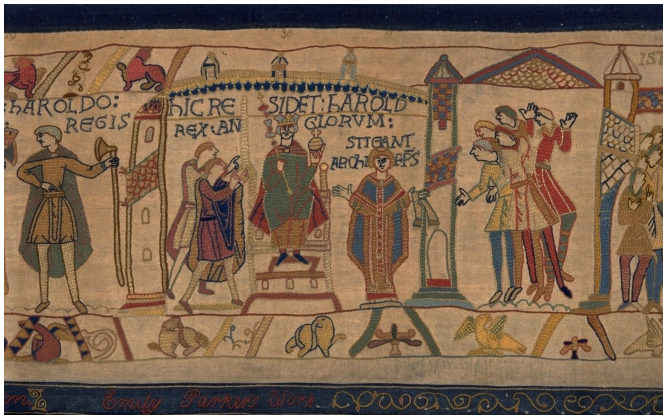 30
31
:hAROLDO:
REGIS
hIC RE SIDET: hAROLD
REX: AN GLORVM:
STIGANT
ARChI EPS
IST
Emily Parker's Work